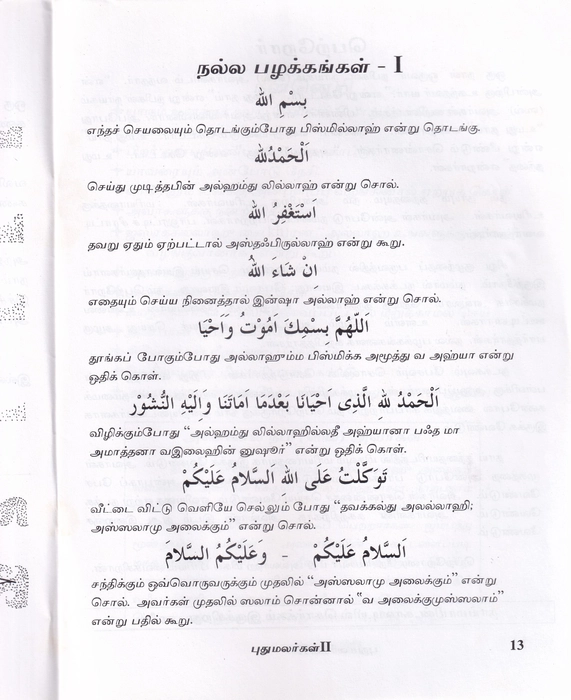 நல்ல பழக்கங்கள் - I
بِسْمِ اللّٰه
எந்தச் செயலையும் தொடங்கும்போது பிஸ்மில்லாஹ் என்று தொடங்கு.
اَلْحَمْدُلِلّٰه
செய்து முடித்தபின் அல்ஹம்து லில்லாஹ் என்று சொல்.
اَسْتَغْفِرُ اللّٰه
தவறு ஏதும் ஏற்பட்டால் அஸ்தஃபிருல்லாஹ் என்று கூறு.
اِنْ شَاءَ اللّٰهُ
எதையும் செய்ய நினைத்தால் இன்ஷா அல்லாஹ் என்று சொல்.
اَللّٰهُمَّ بِسْمِكَ اَمُوْتُ وَاَحْيَا
தூங்கப் போகும்போது அல்லாஹும்ம பிஸ்மிக்க அமூத்து வ அஹ்யா என்று
ஒதிக் கொள்.
اَلْحَمْدُ لِلّٰهِ الَّذِى اَحْيَانَا بَعْدَمَا اَمَاتَنَا وَاِلَيْهِ النُّشُوْر
விழிக்கும்போது “அல்ஹம்து லில்லாஹில்லதீ அஹ்யானா பஃத மா
அமாத்தனா வஇலைஹின் னுஷூர்” என்று ஒதிக் கொள்.
تَوَكَّلْتُ عَلَى اللّٰهِ اَلسَّلَامُ عَلَيْكُمْ
வீட்டை விட்டு வெளியே செல்லும் போது “தவக்கல்து அலல்லாஹி;
அஸ்ஸலாமு அலைக்கும்” என்று சொல்.
اَلسَّلَامُ عَلَيْكُمْ - وَعَلَيْكُمُ السَّلَامَ
சந்திக்கும் ஒவ்வொருவருக்கும் முதலில் “அஸ்ஸலாமு அலைக்கும்” என்று
சொல். அவர்கள் முதலில் ஸலாம் சொன்னால் “வ அலைக்குமுஸ்ஸலாம்”
என்று பதில் கூறு.
புதுமலர்கள் II 13